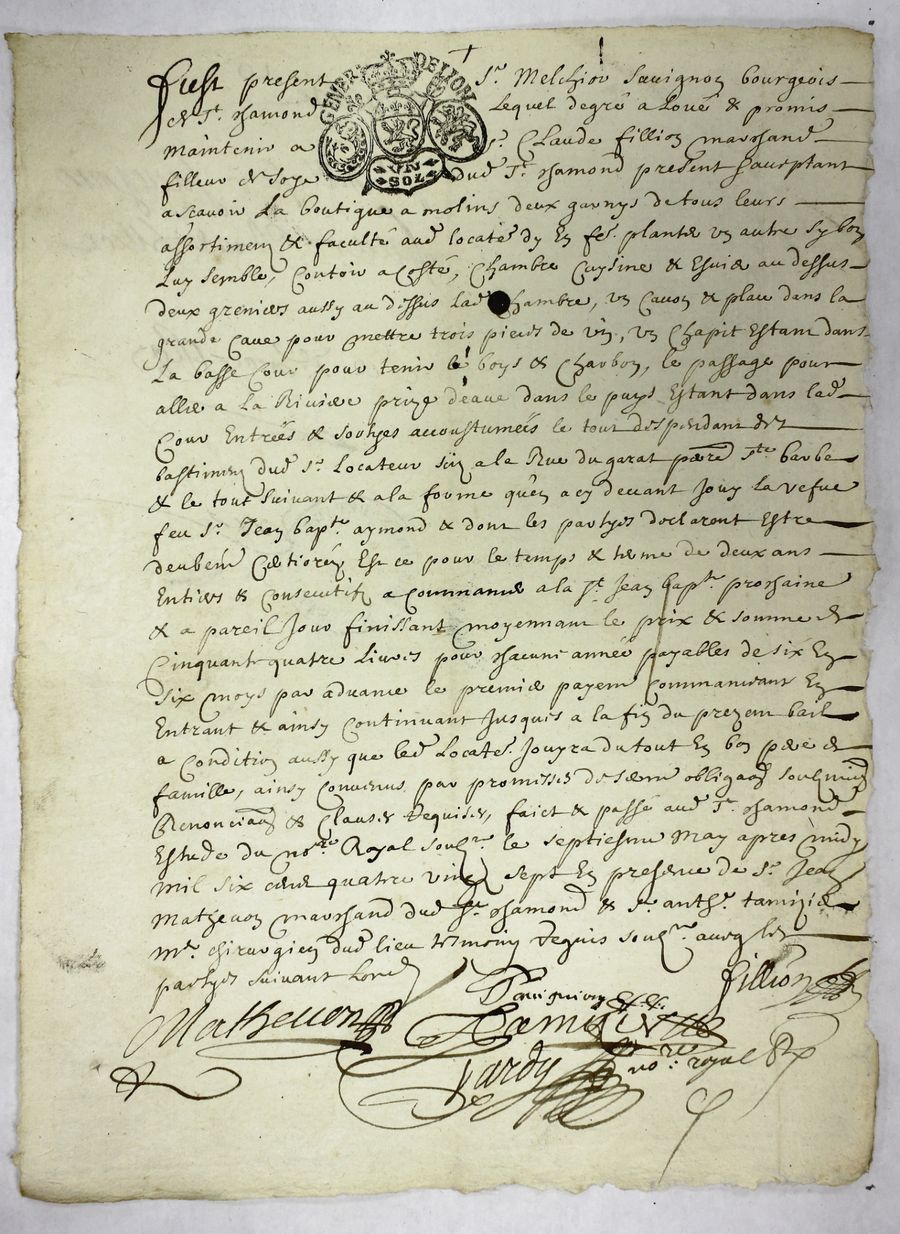 Fust present Sr. Melchior Sauignon bourgeois
de St. chamond Lequel de gré a loué & promis
maintenir a Sr. Claude fillion marchand
filleur de soye dud St. chamond present & aceptant
ascavoir La boutique a molins deux garnys de tous leurs
assortimen & faculté aud locate. dy En fe. planter vn autre sy bon
Luy semble, Contoir a costé, Chambre Cuysine & Esuie au dessus
deux greniers aussy au dessus lad Chambre, vn Cauon & place dans la
grande Caue pour mettre trois pieces de vin, vn Chapit Estant dans
La basse Cour pour tenir le boys & Charbon, le passage pour
aller a La Riuiere prize deaue dans le puys Estant dans lad
Cour Entrées & sorties accoustumées le tout despendant des
bastimen dud Sr. Locateur sis a la Rue du garat Ste barbe
& le tout suivant & a la forme quen a cy deuant Jouy la vefue
feu Sr. Jean bapte. aymond & dont les partyes declarent Estre
Est ce pour le temps & terme de deux ans
Entiers & Consecutifs a Commancer a la St. Jean bapte. prochaine
& a pareil Jour finissant moyennant le prix & somme de
Cinquante quatre liures pour chacune année payables de six En
six moys par aduance le premier payem Commancant En
Entrant & ainsy Continuant Jusques a la fin du prezent bail
a Condition aussy que led Locate. Jouyra du tout En bon pere de
famille, ainsy Conuenus par promisses de serm obligaons soubmiss
Renonciaons & Clauses requises, faict & passé aud St. chamond
Estude du nore. Royal soubne. le septiesme May apres midy
mil six cens quatre vingt sept En presence de Sr. Jean
Matheuon marchand dud St. chamond & Sr. anthe. tamizier
me. chirurgien dud lieu tesmoins requis soubne. auec les
partyes suivant Lord
Sauignion fillion
Matheuon Tamizier
Jardy nore. royal
GENER DE LION
VN
SOL